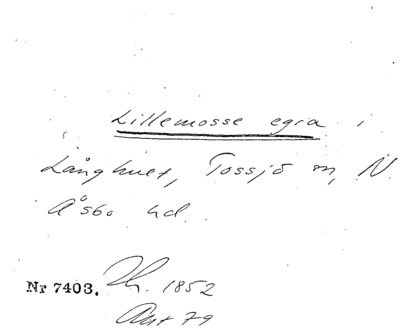 Lillemosse egia i
Långhult, Tossjö sn, N.
Åsbo hd.
Nr 7403. 1852
Akt 79